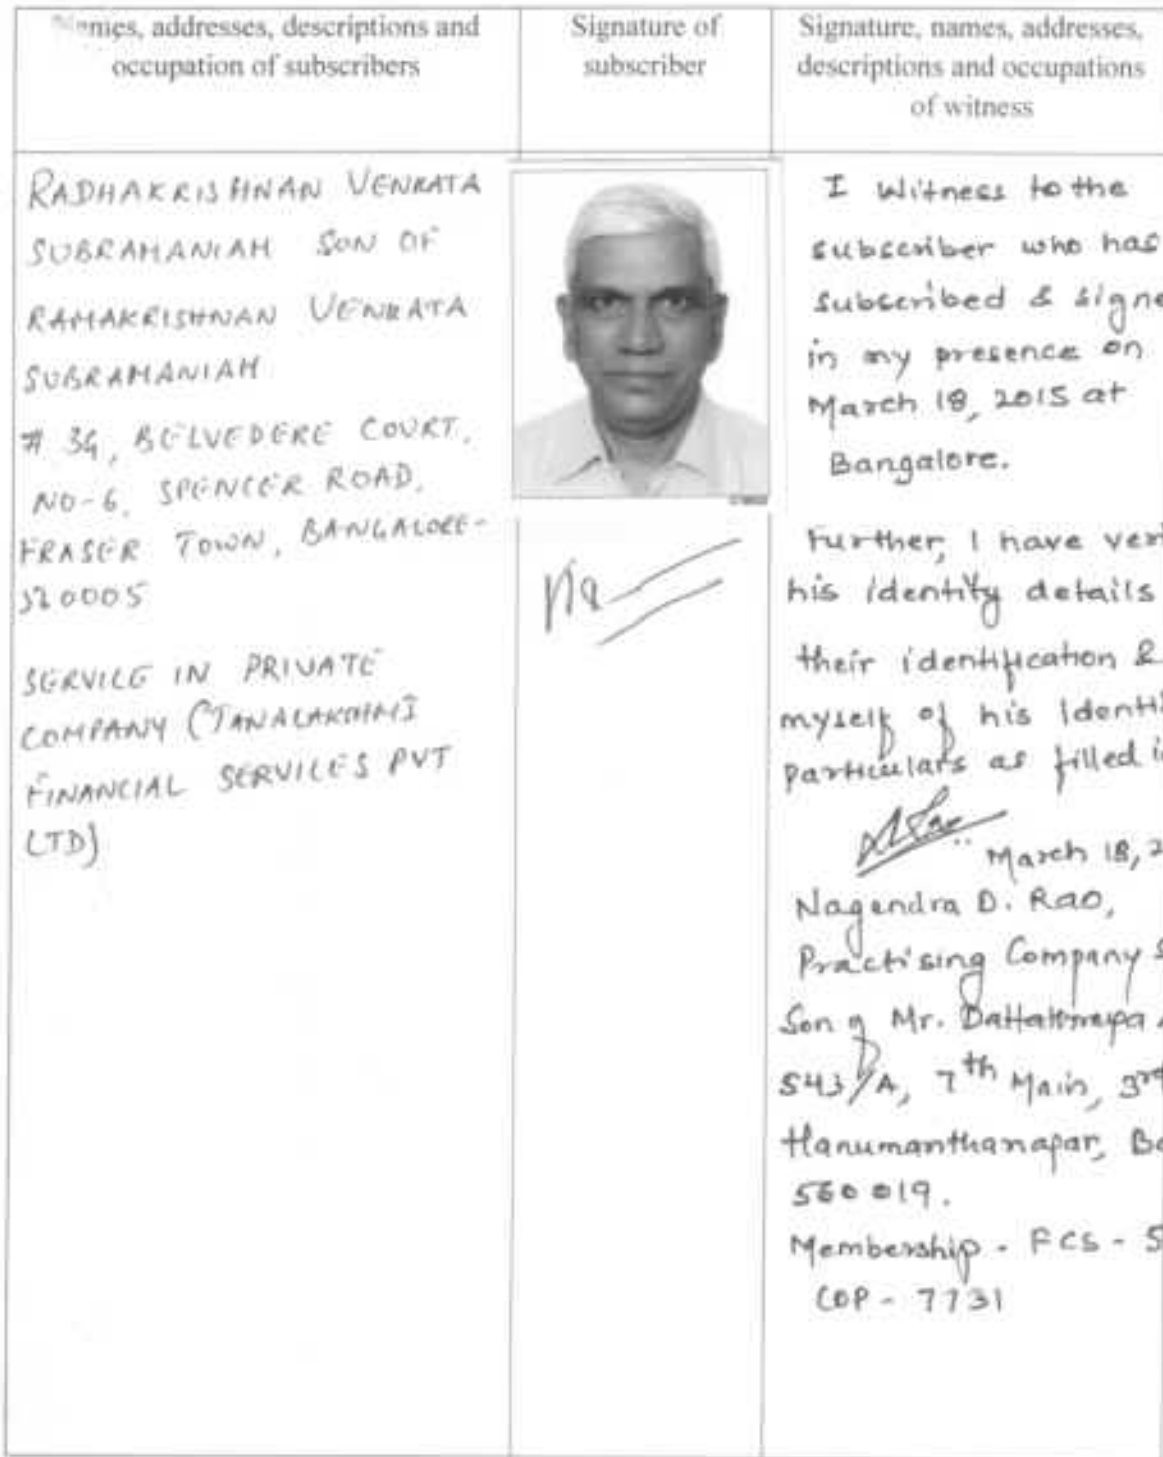 Names, addresses, descriptions and
occupation of subscribers
Signature of
subscriber
Signature, names, addresses,
descriptions and occupations
of witness
RADHAKRISHNAN VENKATA
SUBRAMANIAH SON OF
RAMAKRISHNAN VENKATA
SUBRAMANIAH
# 34, BELVEDERE COURT,
NO-6, SPENCER ROAD,
FRASER TOWN, BANGALORE-
520005
SERVICE IN PRIVATE
COMPANY (TANALAKSHMI
FINANCIAL SERVICES PVT
LTD)
I witness to the
subscriber who has
subscribed & signe
in my presence on
March 18, 2015 at
Bangalore.
Further, I have veri
his identity details
their identification &
myself of his identi
particulars as filled i
March 18, 2
Nagendra D. Rao,
Practising Company S
Son of Mr.
543/A, 7th Main, 3rd
Hanumanthanagar, Ba
560 019.
Membership - FCS - 5
COP - 7731